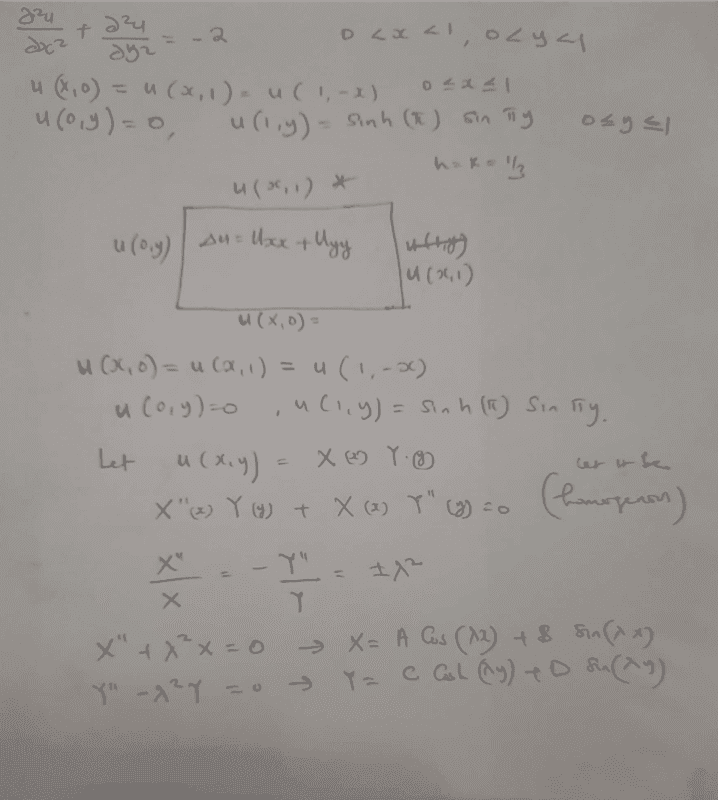 ∂²u/∂x² + ∂²u/∂y² = -2 0 < x < 1, 0 < y < 1
u(x,0) = u(x,1) = u(1,-x) 0 ≤ x ≤ 1
u(0,y) = 0, u(1,y) = sinh(π) sin πy 0 ≤ y ≤ 1
h = k = 1/3
u(x,1) *
u(0,y) Δu = Uxx + Uyy u(1,y)
u(x,1)
u(x,0) =
u(x,0) = u(x,1) = u(1,-x)
u(0,y)=0 , u(1,y) = sinh(π) Sin πy.
Let u(x,y) = X(x) Y.(y) Let it be
X"(x) Y(y) + X(x) Y"(y) = 0 (homogenous)
X"/X = - Y"/Y = ±λ²
X" + λ²X = 0 → X = A Cos(λx) + B Sin(λx)
Y" - λ²Y = 0 → Y = C Cosh(λy) + D Sin(λy)